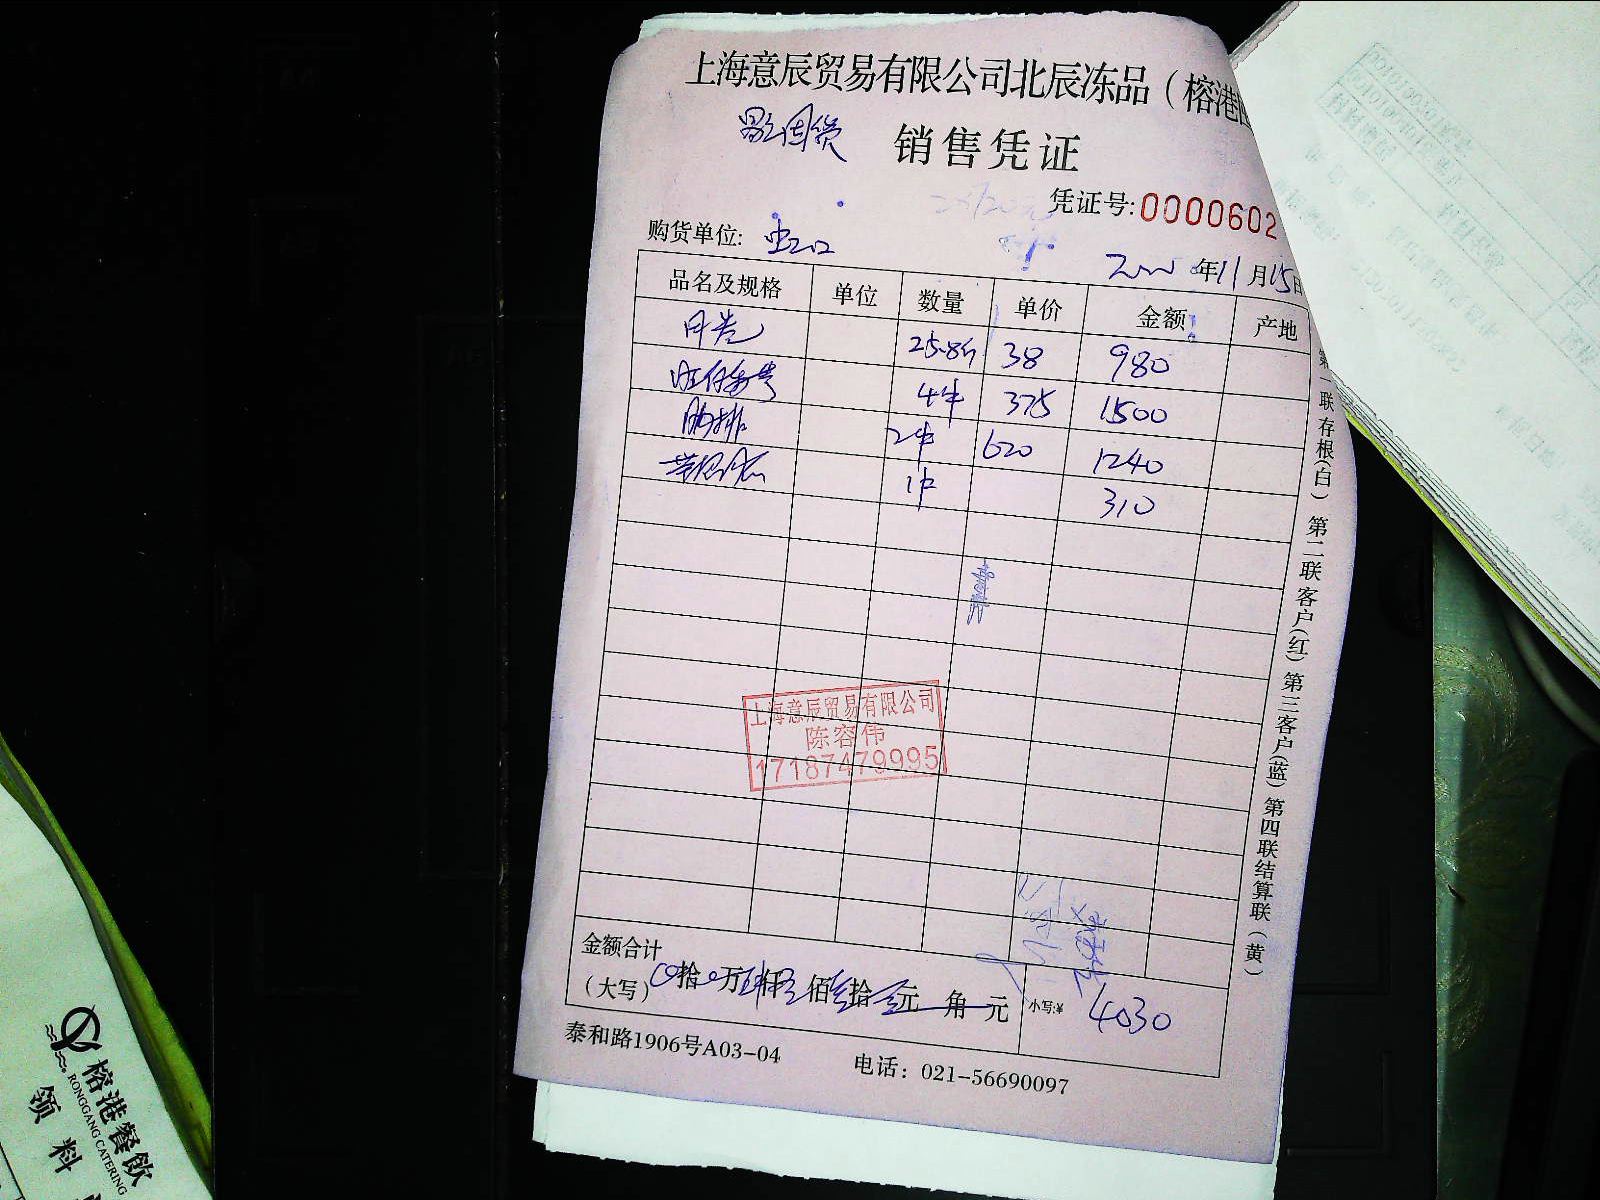 上海意辰贸易有限公司北辰冻品（榕港
销售凭证
凭证号:0000602
购货单位: 虹口
年11月15日
品名及规格 单位 数量 单价 金额 产地
25.8斤 38 980
4件 375 1500
肋排 2件 620 1240
1件 310
上海意辰贸易有限公司
陈容伟
17187479995
金额合计
（大写） 拾 万 仟 佰 拾 元 角 元 小写:¥ 4030
泰和路1906号A03-04 电话：021-56690097
第一联存根(白) 第二联客户(红) 第三客户(蓝) 第四联结算联(黄)
榕港餐飲
RONGGANG CATERING
领料